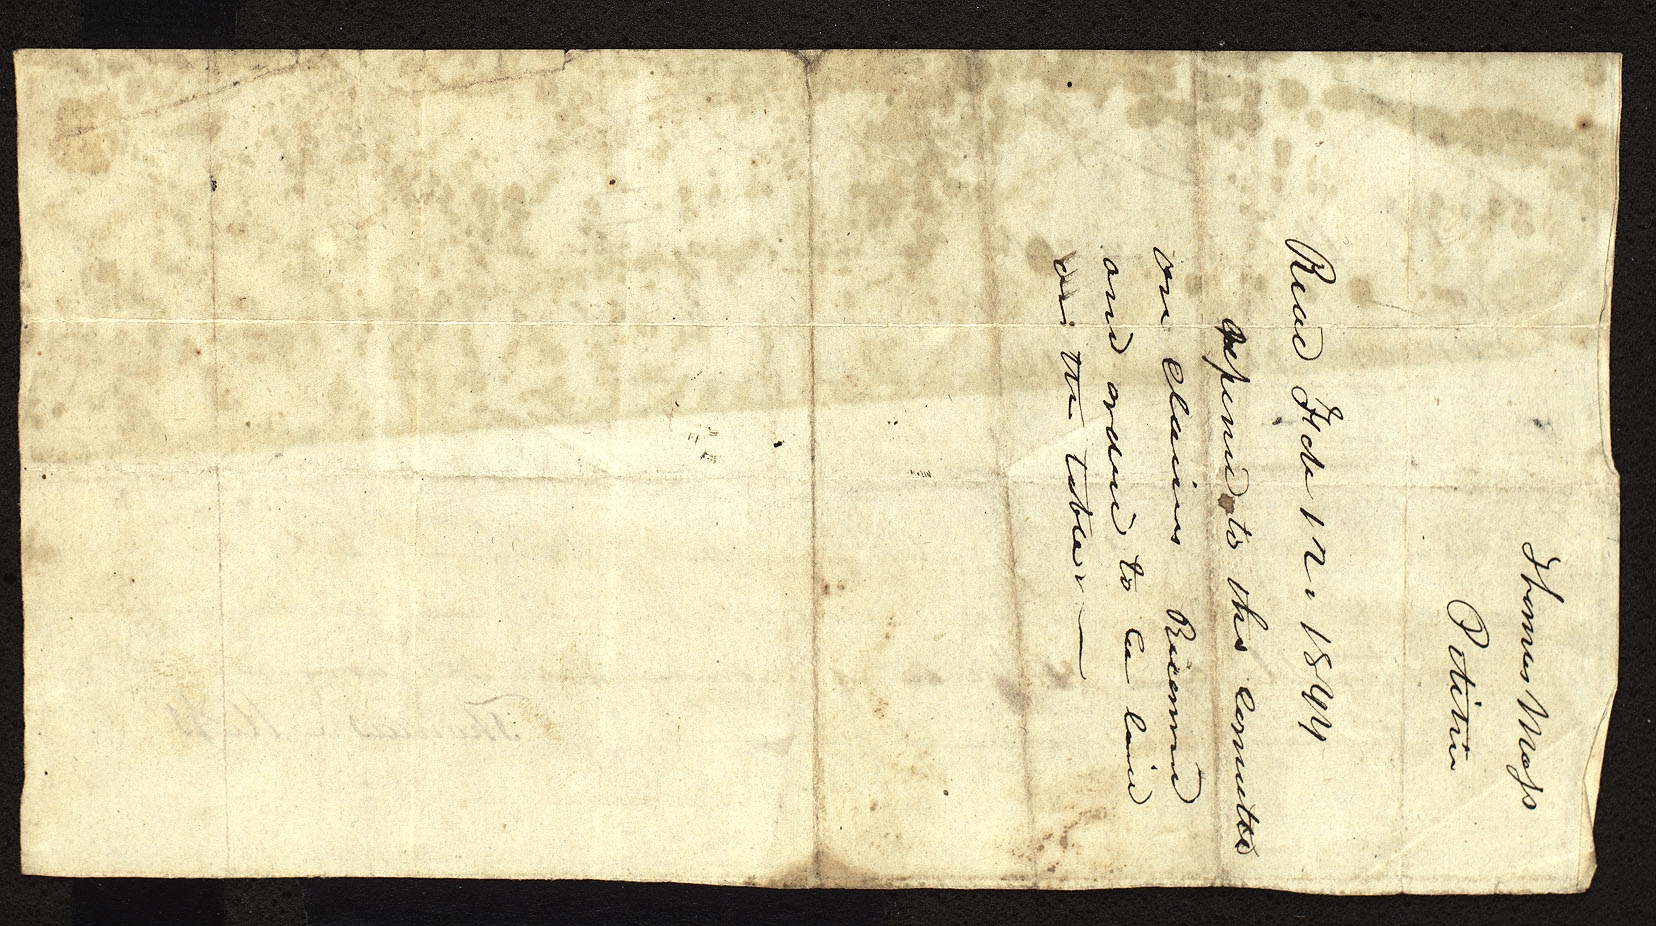 Thomas Moss
Petition
Read Feb 12. 1844
refered to the Comittee
on Claims Recomd
and orderd to be laid
on the table